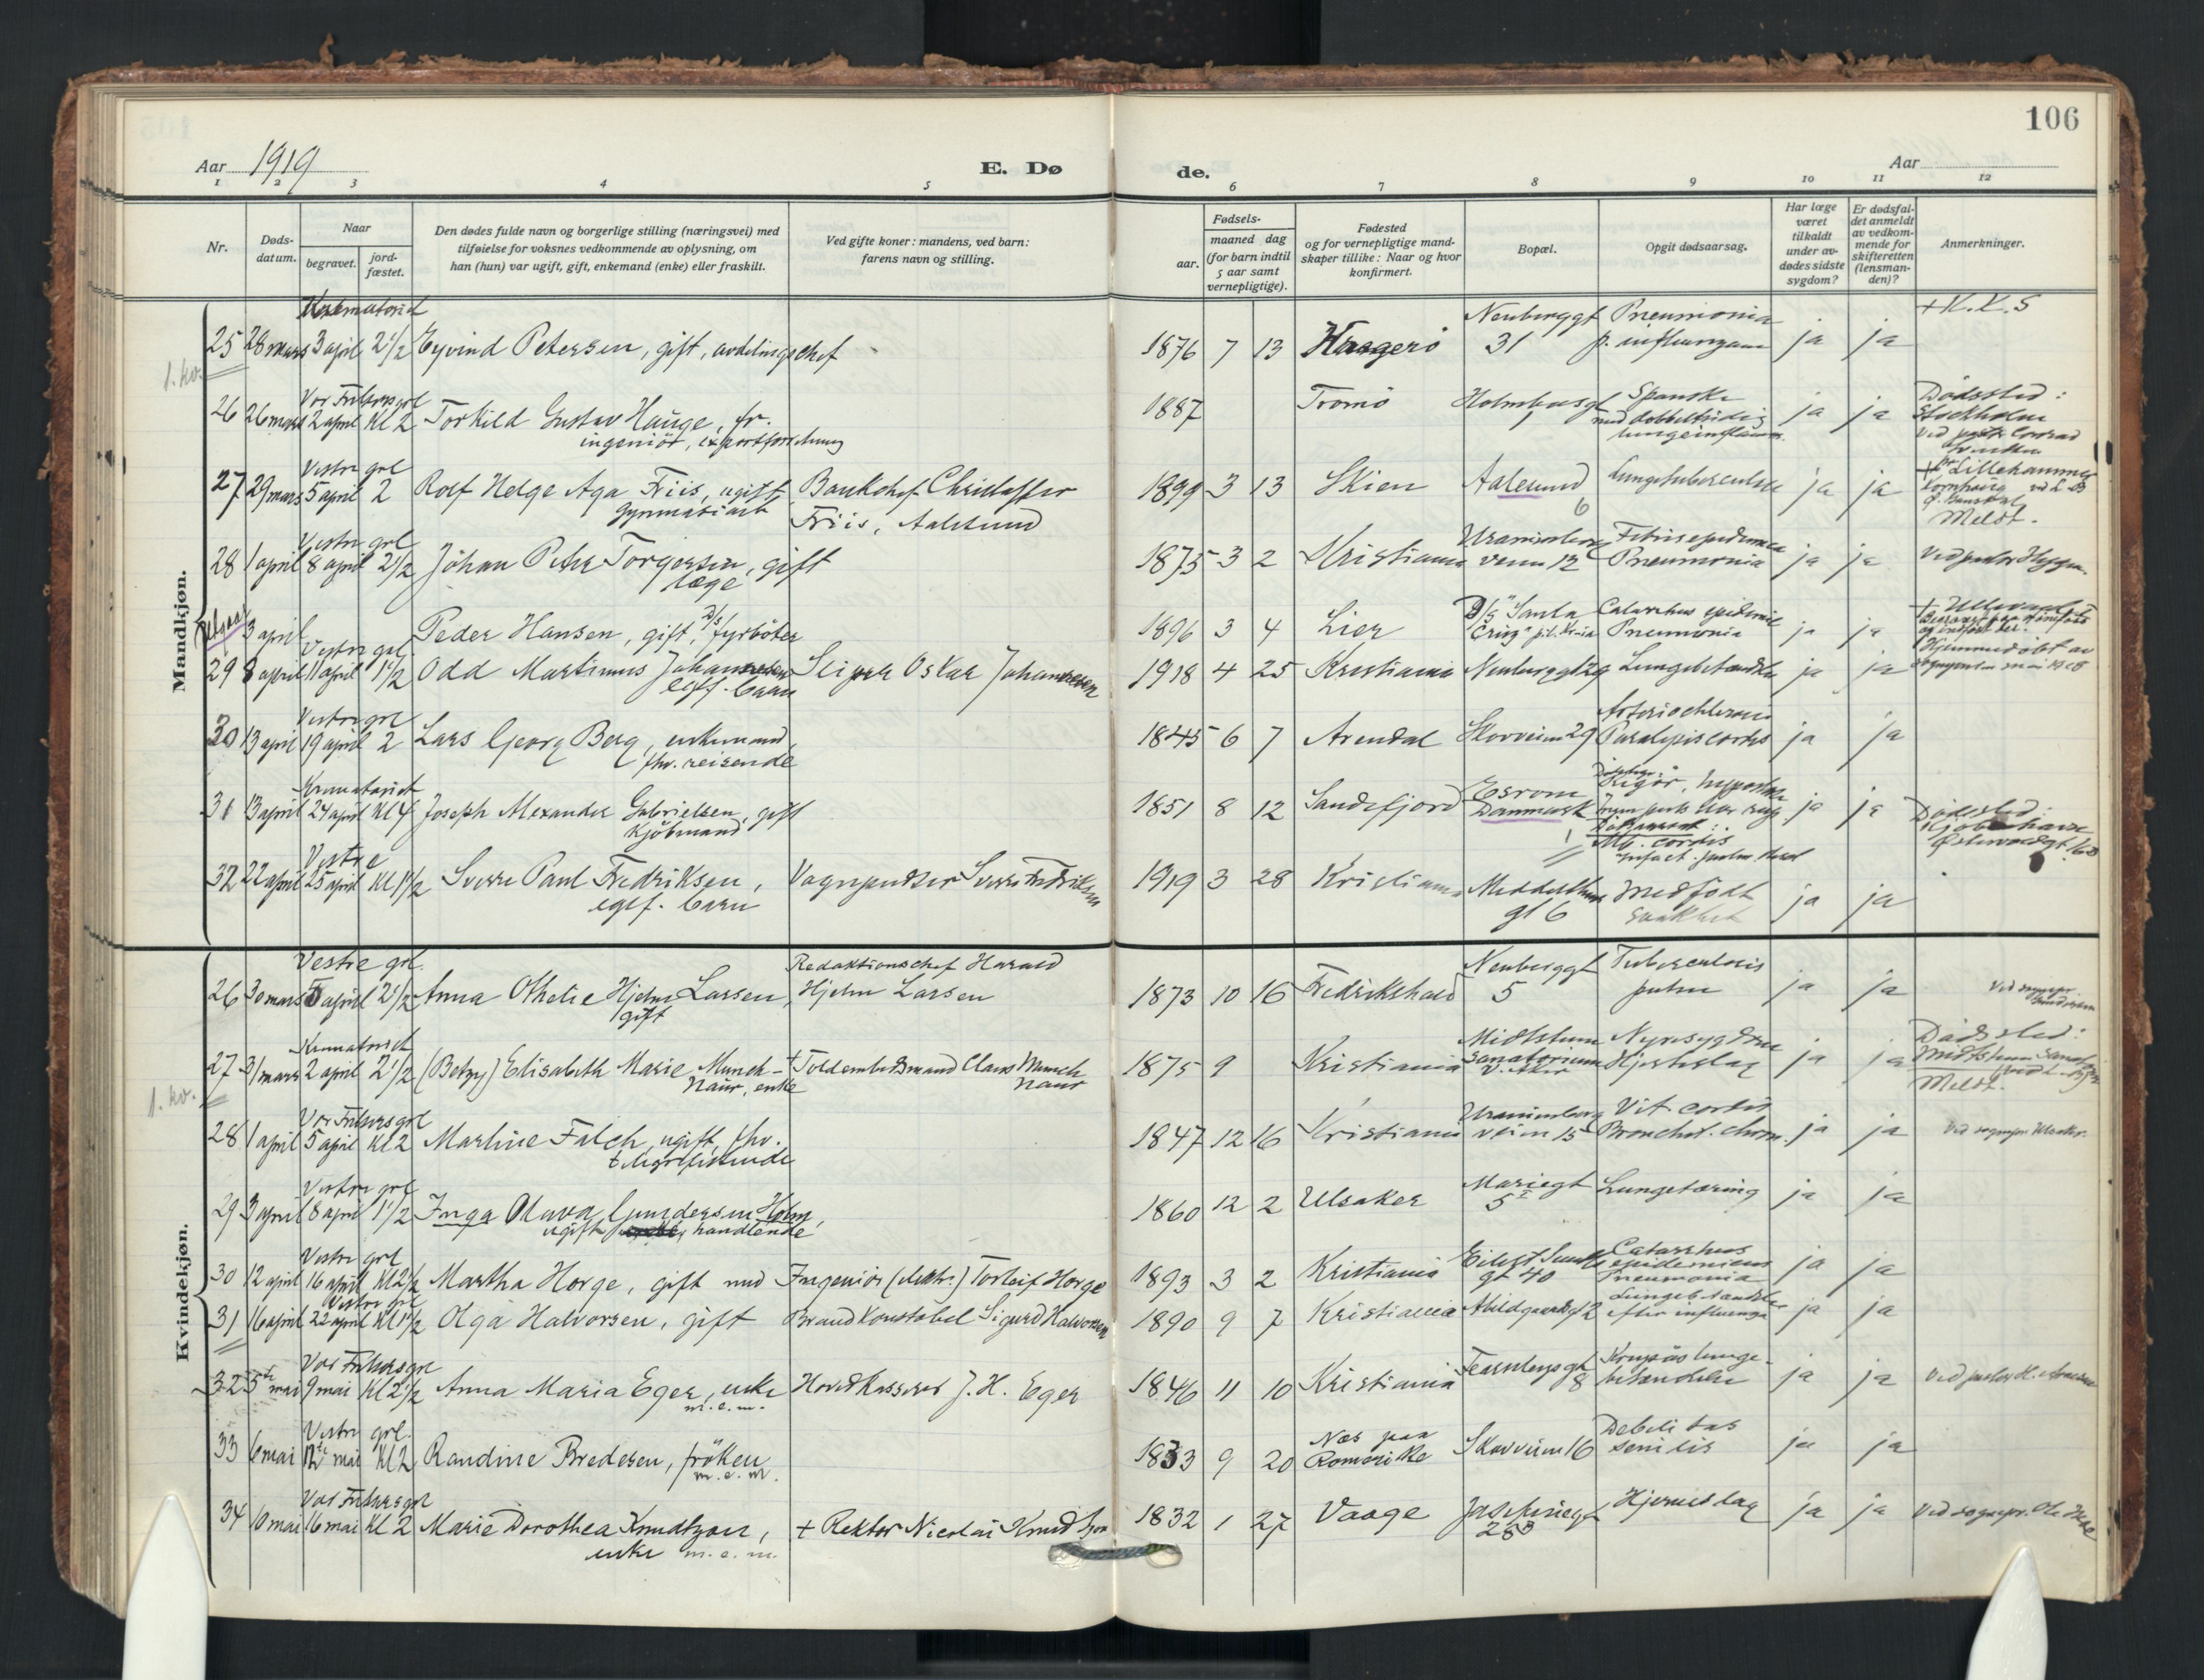 106
Aar 1919
E. Dø
de.
Aar
1 2 3 4 5 6 7 8 9 10 11 12
Nr.
Døds-
datum.
Naar
begravet.
jord-
fæstet.
Den dødes fulde navn og borgerlige stilling (næringsvei) med
tilføielse for voksnes vedkommende av oplysning, om
han (hun) var ugift, gift, enkemand (enke) eller fraskilt.
Ved gifte koner: mandens, ved barn:
farens navn og stilling.
Fødsels-
aar.
maaned dag
(for barn indtil
5 aar samt
vernepligtige).
Fødested
og for vernepligtige mand-
skaper tillike: Naar og hvor
konfirmert.
Bopæl.
Opgit dødsaarsag.
Har læge
været
tilkaldt
under av-
dødes sidste
sygdom?
Er dødsfal-
det anmeldt
av vedkom-
mende for
skifteretten
(lensman-
den)?
Anmerkninger.
Mandkjøn.
Krematoriet
Neuberggt Pneumonia + K.K.S
25 28 mars 3 april 2 1/2 Eyvind Petersen, gift, avdelingschef 1876 7 13 Haagerö 31 p. influenzam ja ja
1. kv.
Vor Frelsers grl Spanske Dødssted:
26 26 mars 2 april Kl 2 Torkild Gustav Hauge, fr. 1887 Tromö 1 med dobbeltsidig ja ja Stockholm
ingeniör,
Vestre grl
27 29 mars 5 april 2 Rolf Helge Aga Friis, ugift, Bankchef Christoffer 1899 3 13 Skien Aalesund Lungetuberculose ja ja Lillehammer
gymnasiast Friis, Aalesund 6 Meldt.
Vestre grl Uranienborg
28 1 april 8 april 2 1/2 Johan Peter Torgersen, gift 1875 3 2 Kristiania veien 12 Pneumonia ja ja
læge
3 april Peder Hansen, gift, D/S fyrböter 1896 3 4 Lier D/S "Santa Catarrhus epidemic ja ja + Ullevaal
Cruz" Pneumonia
Vestre grl
29 8 april 11 april 1 1/2 Odd Martinus Johannesen Sliper Oskar Johannesen 1918 4 25 Kristiania Neuberggt 29 Lungebetændelse ja ja Hjemmedöbt av
egtf. barn
Vestre grl
30 13 april 19 april 2 Lars Georg Berg, enkemand, 1845 6 7 Arendal Skovveien 29 Paralysis cordis ja ja
fhv. reisende
Krematoriet
31 13 april 24 april Kl 4 Joseph Alexander Gabrielsen, gift 1851 8 12 Sandefjord Esrom ja ja Dødssted
Kjöbmand Danmark Kjöbenhavn
Mb. cordis
Vestre
32 22 april 25 april Kl 1 1/2 Sverre Paul Fredriksen, Vognpudser Sverre Fredriksen 1919 3 28 Kristiania Middelthuns Medfødt ja ja
egtf. barn gt 6 svakhet
Kvindekjøn.
Vestre grl. Redaktionschef Harald Neuberggt Tuberculosis
26 30 mars 5 april 2 1/2 Anna Othelie Hjelm Larsen, Hjelm Larsen 1873 10 16 Fredrikshald 5 pulm ja ja
gift
Krematoriet Nyresygdom Dødssted:
27 31 mars 2 april 2 1/2 (Betzy) Elisabeth Marie Munch- + Toldembedsmand Claus Munch 1875 9 Kristiania sanatorium Hjerteslag ja ja
1. kv. Naur, enke Naur V. Aker Meldt.
Vor Frelsers grl Uranienborg Vit. cordis
28 1 april 5 april Kl 2 Martine Falch, ugift, fhv. 1847 12 16 Kristiania veien 15 Bronchit. chron. ja ja
telegrafistinde
Vestre grl Mariegt
29 3 april 8 april 1 1/2 Inga Olava Gundersen Holm, 1860 12 2 Ulsaker 5 I Lungetæring ja ja
ugift, handlende
Vestre grl Eilert Sundts Catarrhus
30 12 april 16 april Kl 2 1/2 Martha Horge, gift med Ingeniör (elektr.) Torleif Horge 1893 3 2 Kristiania gt 40 epidemicus ja ja
Pneumonia
Vestre grl Lungebetændelse
31 16 april 22 april Kl 1 1/2 Olga Halvorsen, gift Brandkonstabel Sigurd Halvorsen 1890 9 7 Kristiania Abildgaardsgt 2 efter influenza ja ja
Vor Frelsers grl Krupøs lunge-
32 5te mai 9 mai Kl 2 1/2 Anna Maria Eger, enke Hovedkasserer J. H. Eger 1846 11 10 Kristiania Fearnleysgt 8 betændelse ja ja
m. e. m.
Vestre grl. Nes paa Debilitas
33 6 mai 12te mai Kl 2 Randine Bredesen, fröken 1833 9 20 Romerike Skovveien 16 senilis ja ja
m. e. m.
Vor Frelsers grl
34 10 mai 16 mai Kl 2 Marie Dorothea Knudtzon, + Rektor Nicolai Knudtzon 1832 1 27 Vaage Josefinegt Hjerneslag ja ja
enke m. e. m. 28 B